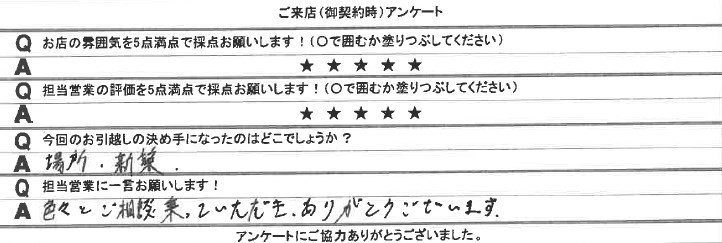 ご来店（御契約時）アンケート
Q お店の雰囲気を5点満点で採点お願いします！（〇で囲むか塗りつぶしてください）
A ★ ★ ★ ★ ★
Q 担当営業の評価を5点満点で採点お願いします！（〇で囲むか塗りつぶしてください）
A ★ ★ ★ ★ ★
Q 今回のお引越しの決め手になったのはどこでしょうか？
A 場所・新築．
Q 担当営業に一言お願いします！
A 色々とご相談乗っていただき、ありがとうございます。
アンケートにご協力ありがとうございました。